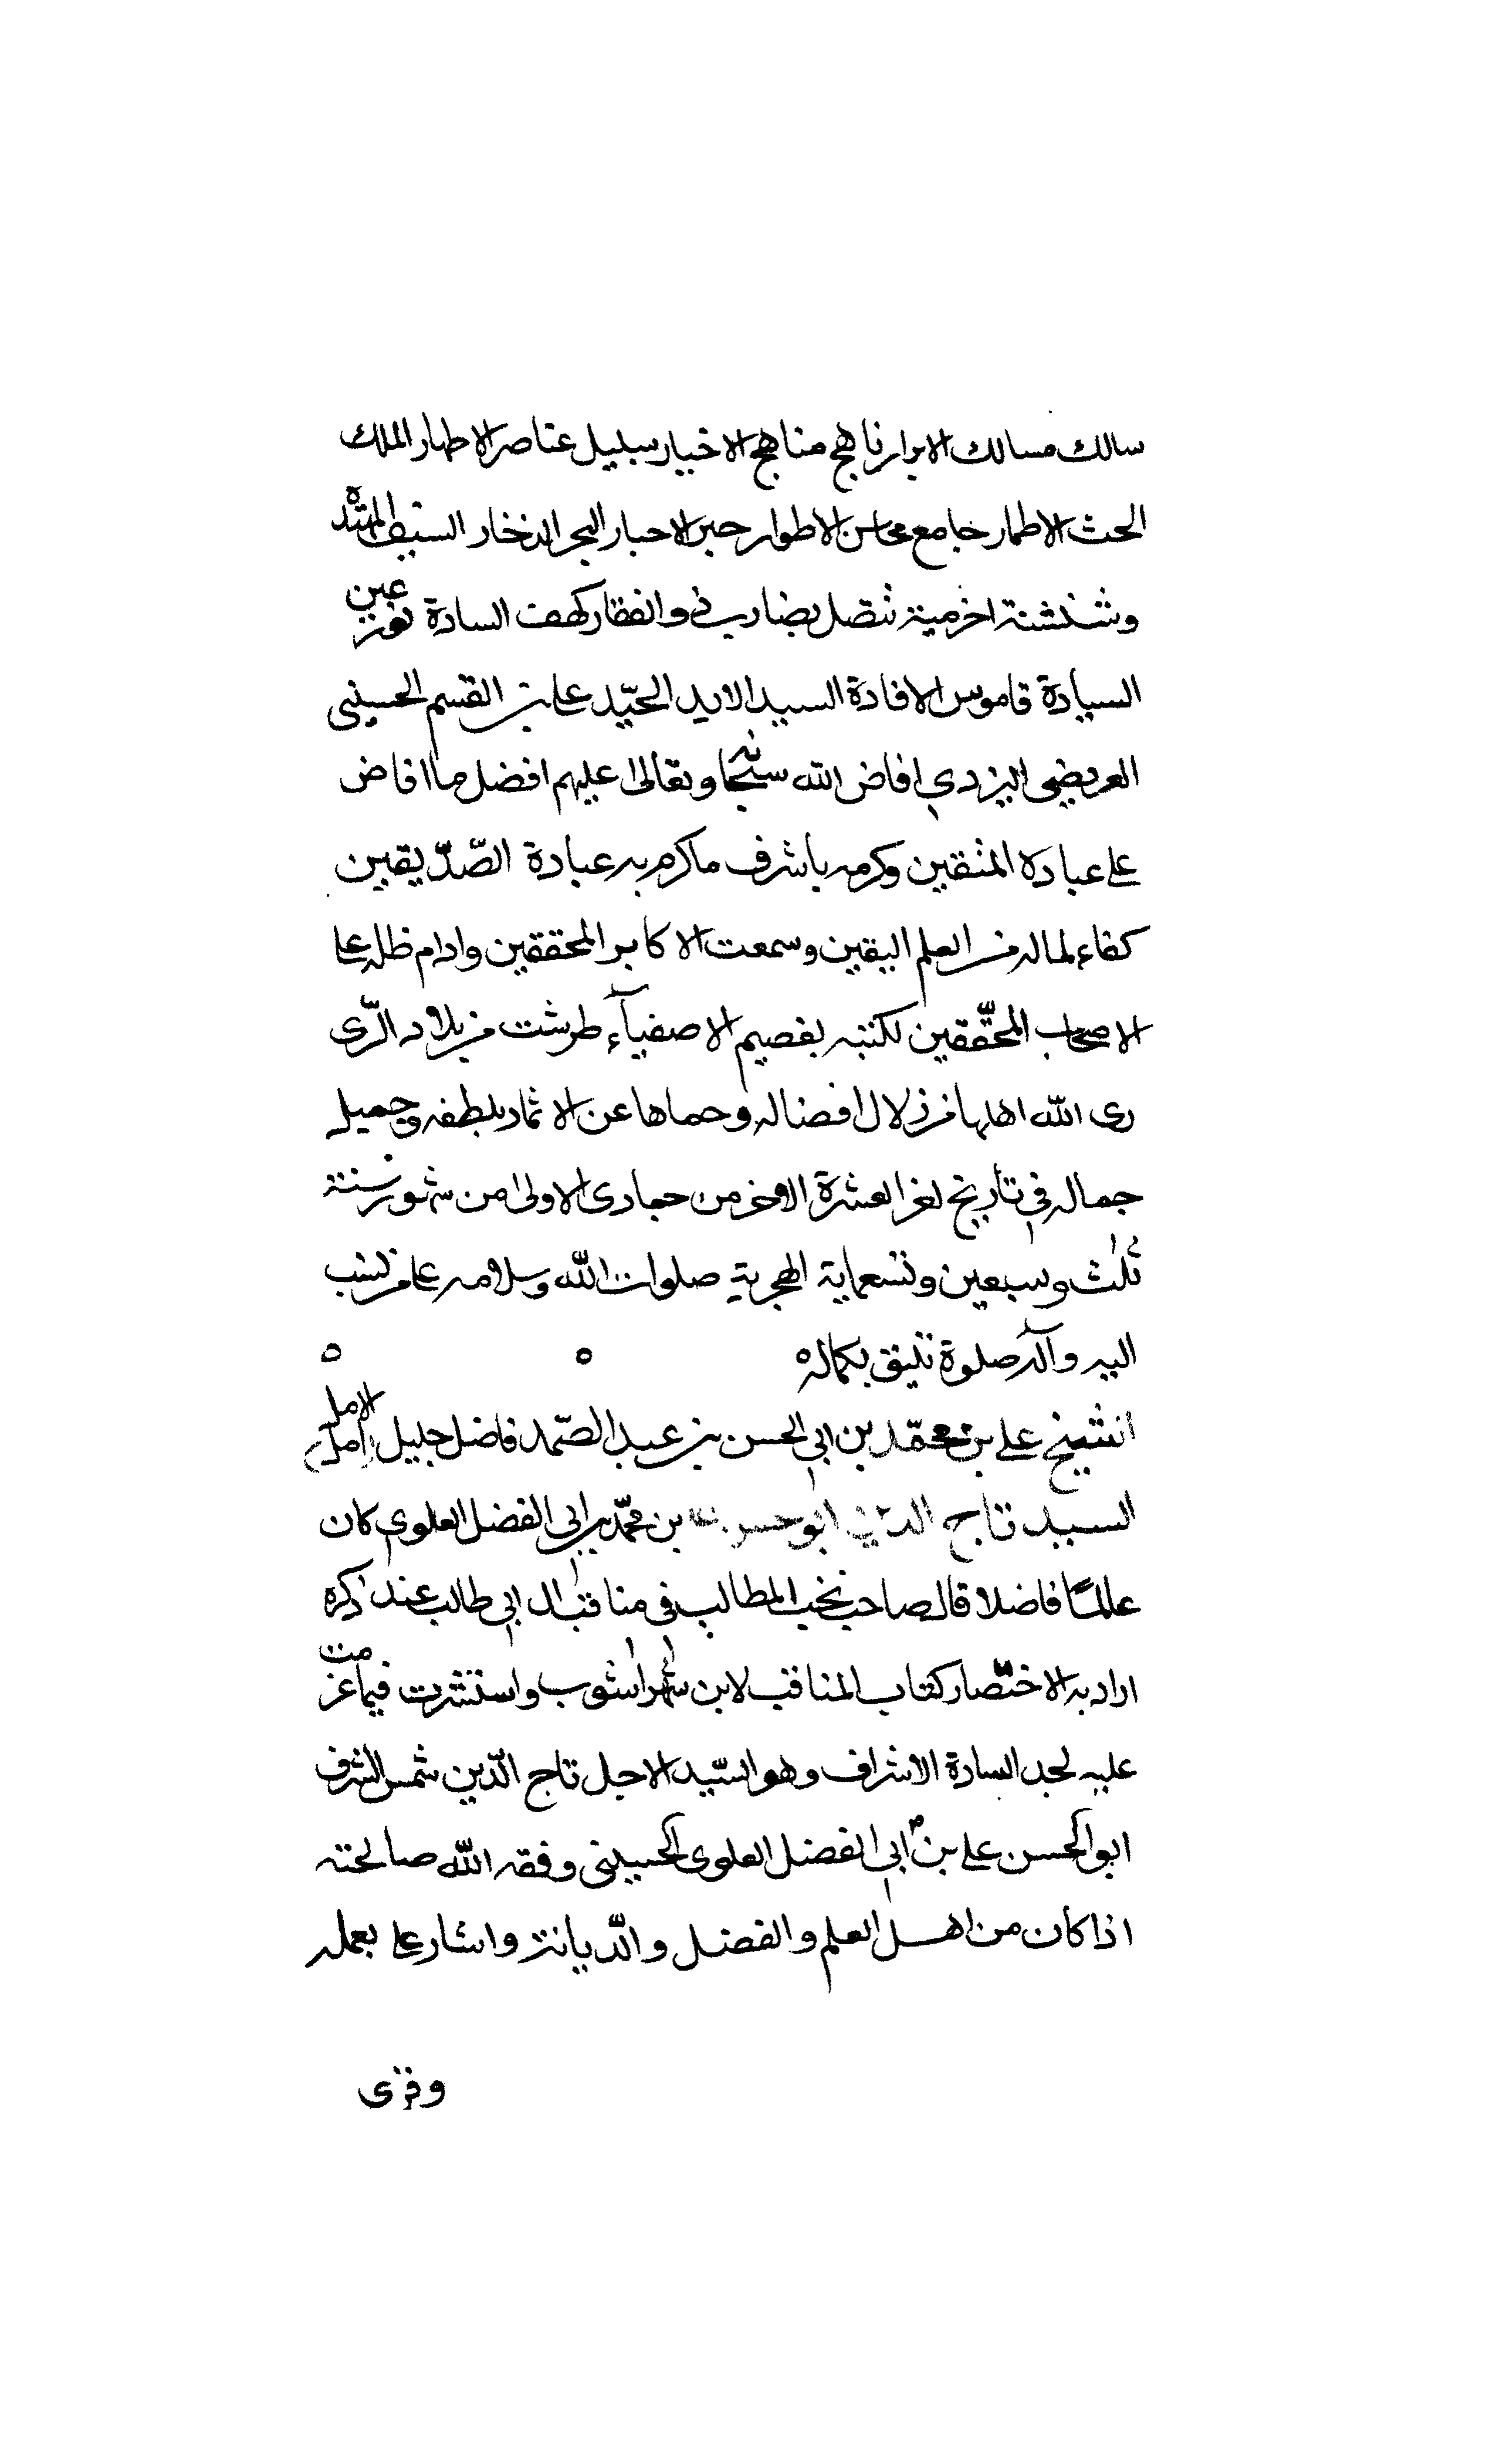 سالك مسالك الابرار ناهج مناهج الاخيار سبليل عناصر الاطهار الملك
الحث الاطمار جامع محاسن الاطوار حبر الاحبار البحر الذخار السيف
وشنشنة اخزمية تتصل بضارب ذو الفقار كهف السادة عين
السيادة قاموس الافادة السيد الايد الحيّد على بن القسم الحسينى
العريضى اليزدي افاض الله سبحانه وتعالى عليهم افضل ما افاض
على عباده المتقين وكرمه باشرف ما كرم به عبادة الصّدّيقين
كفاء لماله من العلم اليقين وسمعت الاكابر المحققين وادام ظله على
الاصحاب المحقّقين لكتبه بقصيم الاصفيآء طرشت من بلاد الرّى
رى الله اهلها من زلال افضاله وحماها عن الاثماد بلطفه وجميل
جماله في تاريخ لغر العشرة الاخر من جمادى الاولى من شهور سنة
ثلث وسبعين وتسعماية الهجرية صلوات الله وسلامه على من نسب
اليه وآله صلوة تليق بكماله
الشيخ على بن محمّد بن ابي الحسن بن عبد الصّمد فاضل جليل الامل
السيد تاج الدين ابو حسن بن محمّد بن ابي الفضل العلوي كان
عالمًا فاضلا قال صاحب نخب المطالب فى مناقب ال ابي طالب عند ذكره
اراد به الاختصار كتاب المناقب لابن شهراشوب واستشرت فيما عزمت
عليه لجد السادة الاشراف وهو السّيد الاجل تاج الدّين شمس الشرف
ابو الحسن على بن ابي الفضل العلوى الحسينى وفقه الله صالحته
اذا كان من اهل العلم والفضل والدّيانة واشار على بعمله